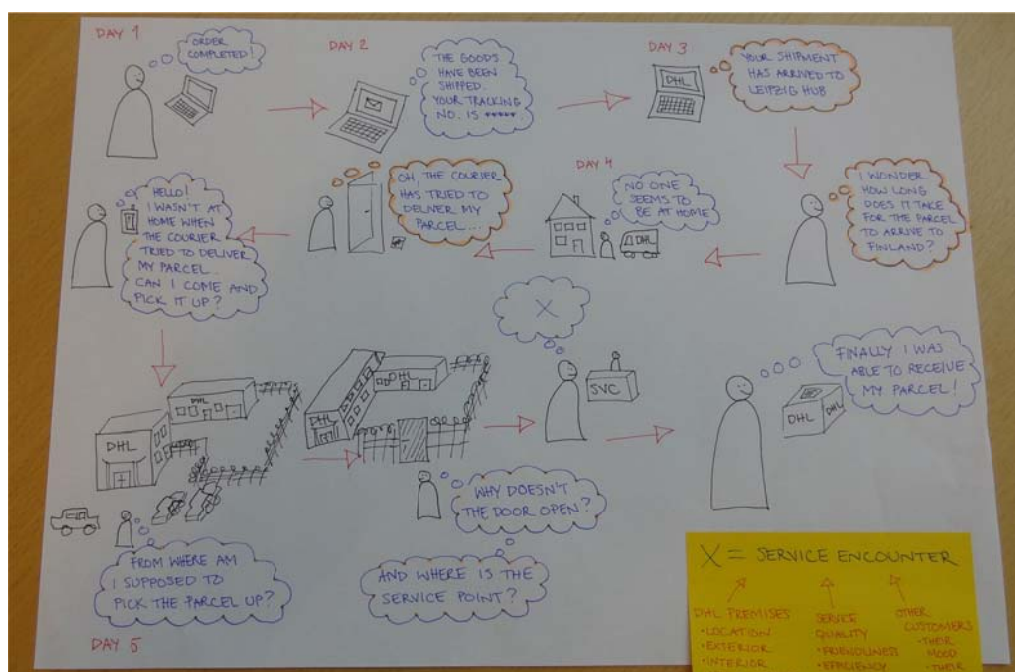 DAY 1
ORDER
COMPLETED!
DAY 2
THE GOODS
HAVE BEEN
SHIPPED.
YOUR TRACKING
NO. IS *****
DAY 3
DHL
YOUR SHIPMENT
HAS ARRIVED TO
LEIPZIG HUB
I WONDER
HOW LONG
DOES IT TAKE
FOR THE PARCEL
TO ARRIVE TO
FINLAND?
DAY 4
NO ONE
SEEMS TO
BE AT HOME
DHL
OH, THE COURIER
HAS TRIED TO
DELIVER MY
PARCEL...
HELLO!
I WASN'T AT
HOME WHEN
THE COURIER
TRIED TO DELIVER
MY PARCEL..
CAN I COME AND
PICK IT UP?
DHL
DHL
FROM WHERE AM
I SUPPOSED TO
PICK THE PARCEL UP?
DAY 5
DHL
DHL
WHY DOESN'T
THE DOOR OPEN?
AND WHERE IS THE
SERVICE POINT?
X
SVC
FINALLY I WAS
ABLE TO RECEIVE
MY PARCEL!
DHL
DHL
X = SERVICE ENCOUNTER
DHL PREMISES
•LOCATION
•EXTERIOR
•INTERIOR
SERVICE
QUALITY
•FRIENDLINESS
•EFFICIENCY
OTHER
CUSTOMERS
•THEIR
MOOD
•THEIR